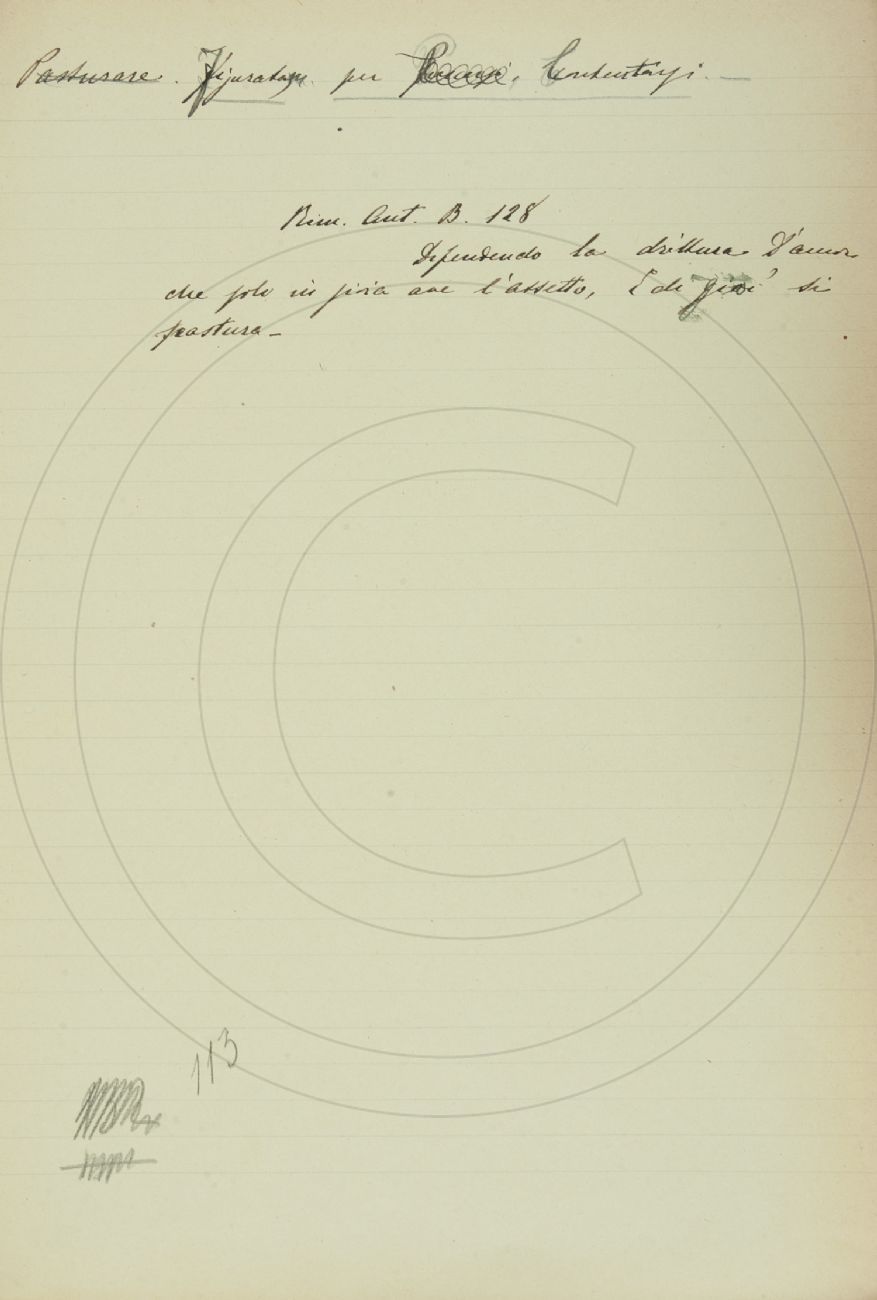 Pasturare. Figuratam. per Contentarsi. —
Rim. Ant. B. 128
Difendendo la drittura d'amor
che solo in gioia ave l'assetto, E di gioi' si
pastura —
113